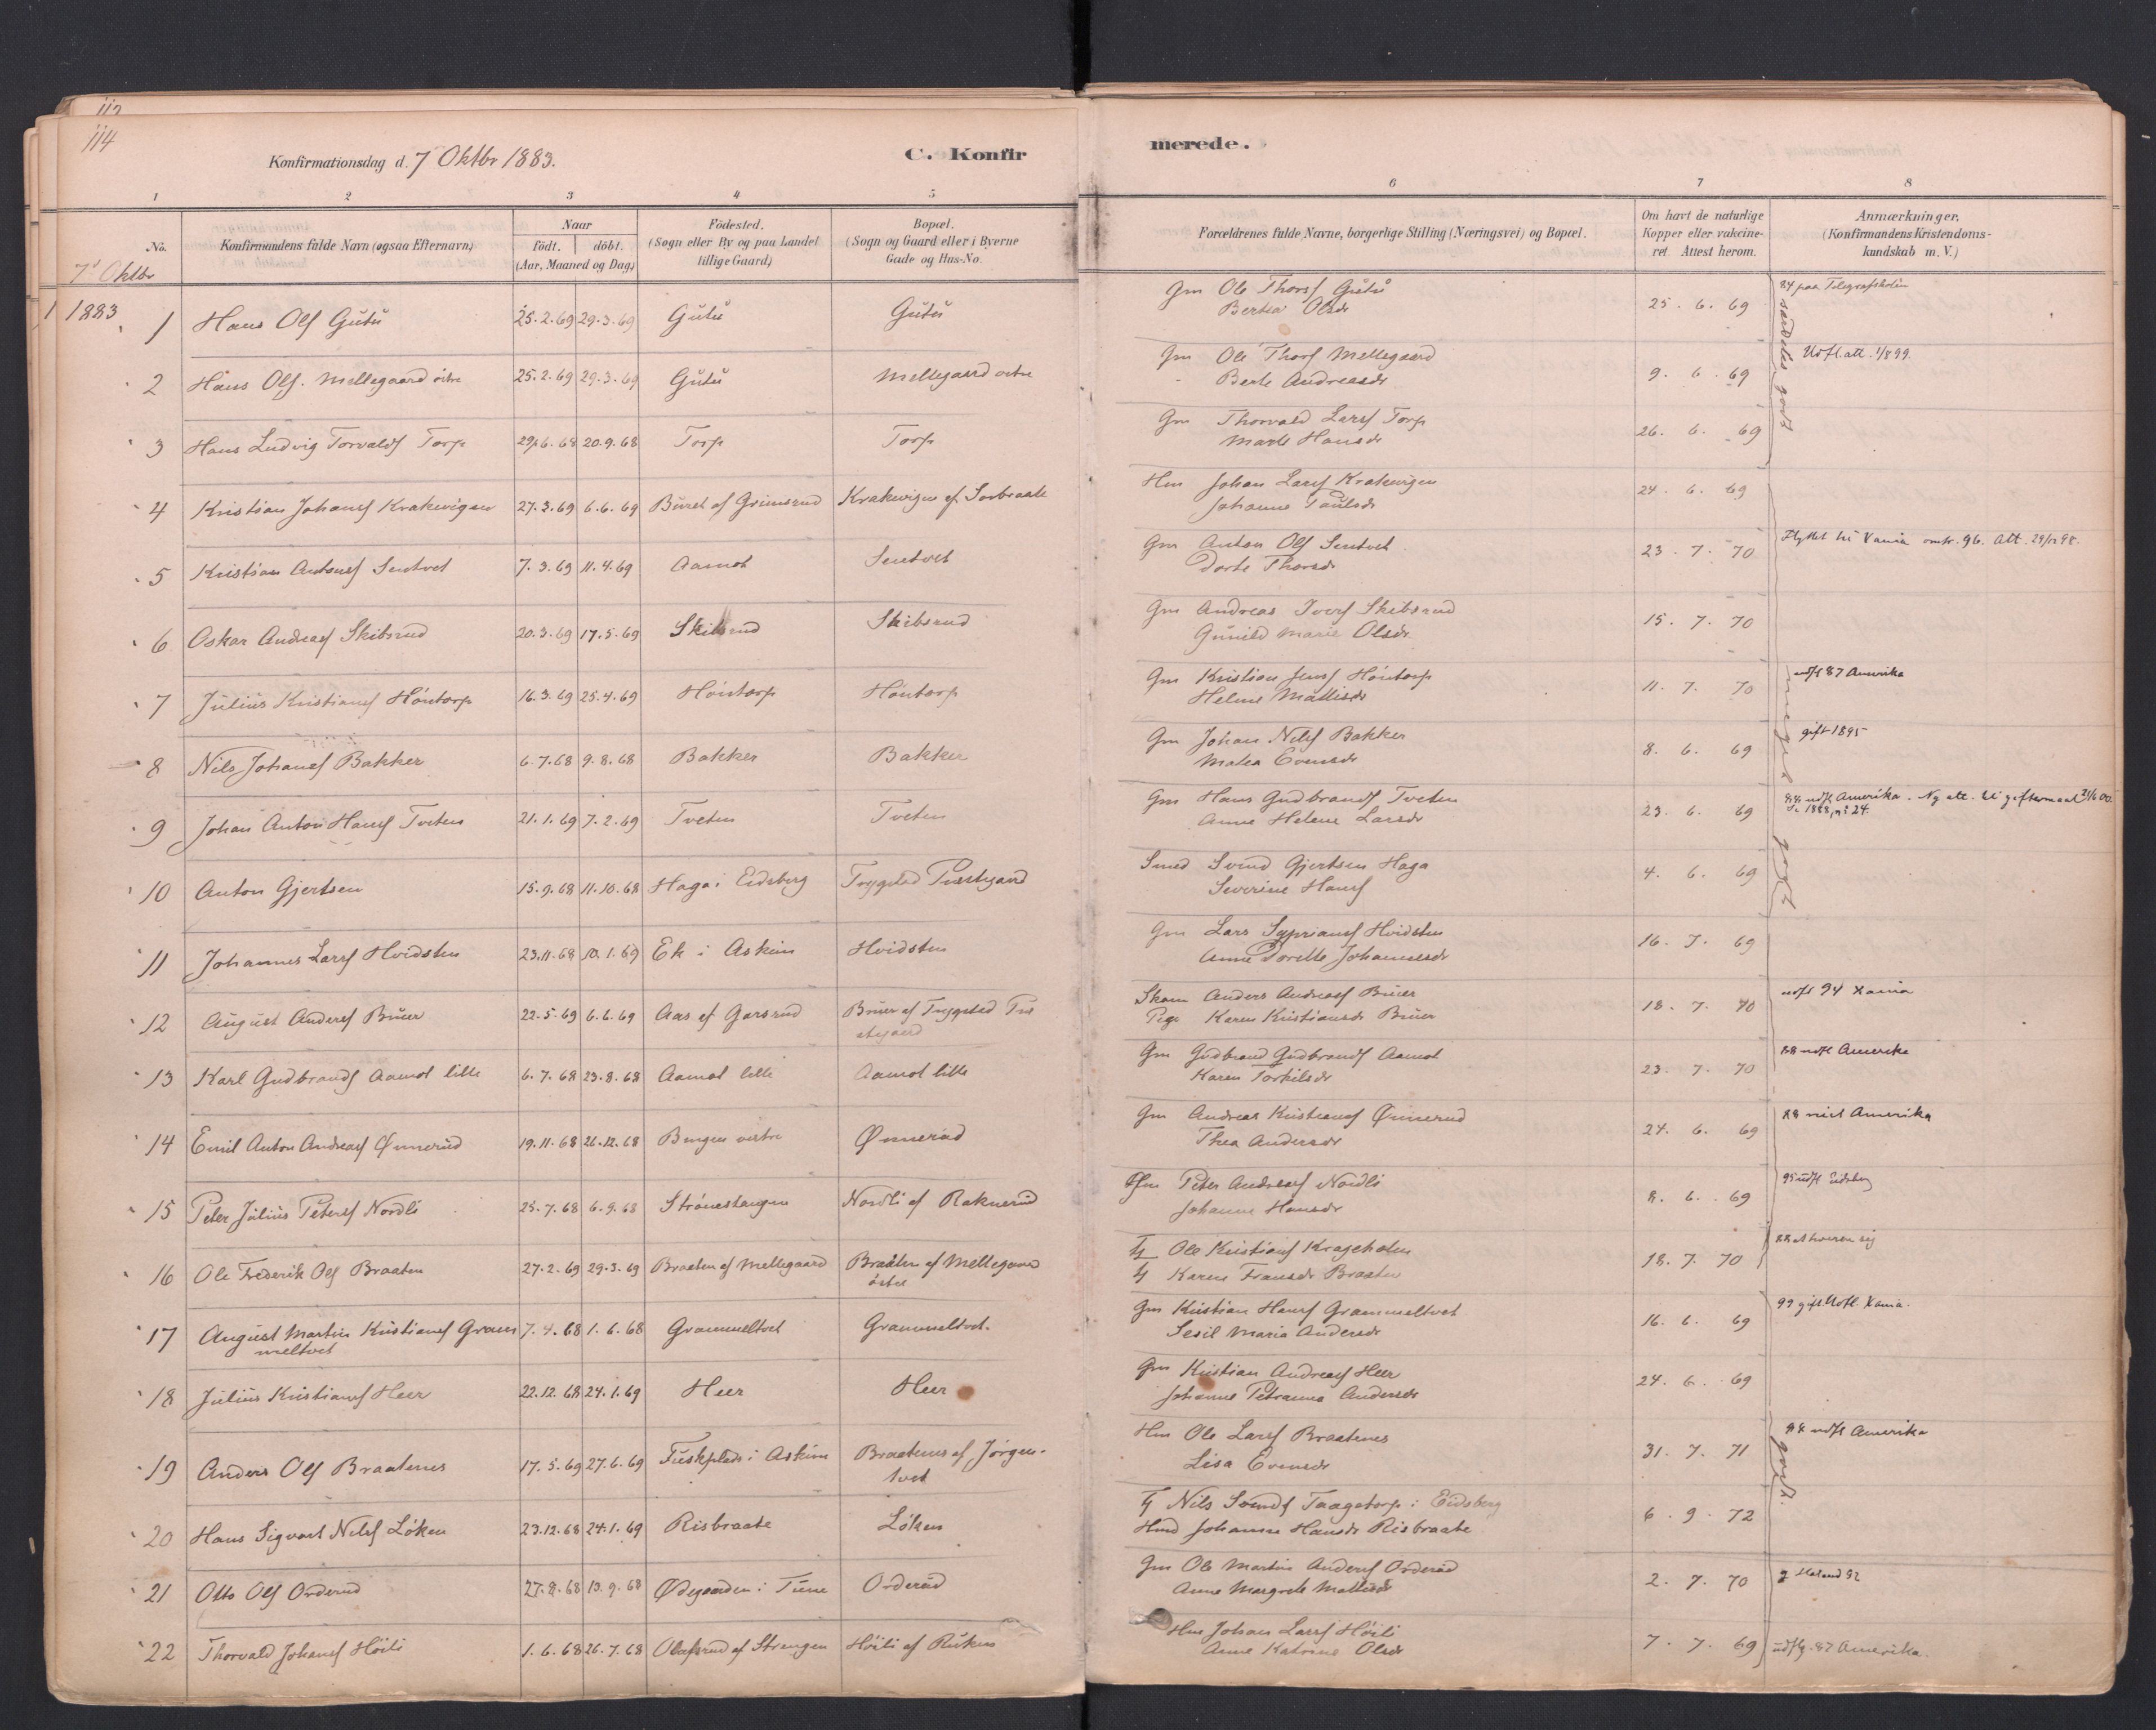 114
Konfirmationsdag d. 7 Oktbr 1883.
C. Konfirmerede.
1 2 3 4 5 6 7 8
No.
Konfirmandens fulde Navn (ogsaa Efternavn)
Naar
födt. döbt.
(Aar, Maaned og Dag)
Födested.
(Sogn eller By og paa Landet
tillige Gaard)
Bopæl.
(Sogn og Gaard eller i Byerne
Gade og Hus-No.
Forældrenes fulde Navne, borgerlige Stilling (Næringsvei) og Bopæl.
Om havt de naturlige
Kopper eller vakcine-
ret. Attest herom.
Anmærkninger,
(Konfirmandens Kristendoms-
kundskab m. V.)
7d Oktbr
1 1883
1 Hans Olf Gutu 25.2.69 29.3.69 Gutu Gutu Gm Ole Thorsf Gutu 25. 6. 69 84 paa Telegrafskolen
Bertea Olsdr
særdeles godt
2 Hans Olf. Mellegaard östre 25.2.69 29.3.69 Gutu Mellegaard östre Gm Ole Thorsf Mellegaard 9. 6. 69 Udfl.att. 1/8 99.
Berte Andreasdr
3 Hans Ludvig Torvaldf Torp 29.6.68 20.9.68 Torp Torp Gm Thorvald Larsf Torp 26. 6. 69
Marte Hansdr
4 Kristian Johansf Krakevigen 27.3.69 6.6.69 Buret af Grimsrud Krakevigen af Sorbraate Hm Johan Larsf Krakevigen 24. 6. 69
Johanne Paulsdr
5 Kristian Antonsf Sentvet 7.3.69 11.4.69 Aamot Sentvet Gm Anton Olf Sentvet 23. 7. 70 Flyttet til Xania omtr. 96. Att. 29/12 98.
Dorte Thorsdr
6 Oskar Andreasf Skibsrud 20.3.69 17.5.69 Skibsrud Skibsrud Gm Andreas Iversf Skibsrud 15. 7. 70
Gunild Marie Olsdr
7 Julius Kristiansf Höntorp 16.3.69 25.4.69 Höntorp Höntorp Gm Kristian Jensf Höntorp 11. 7. 70 udfl 87 Amerika
Helene Mattisdr
meget godt
8 Nils Johansf Bakker 6.7.68 9.8.68 Bakker Bakker Gm Johan Nilsf Bakker 8. 6. 69 gift 1895
Matea Evensdr
9 Johan Anton Hansf Tveten 21.1.69 7.2.69 Tveten Tveten Gm Hans Gudbrandf Tveten 23. 6. 69 88 udfl Amerika. Ny att. til giftermaal
Anne Helene Larsdr Se 1888, nº 24.
10 Anton Gjertsen 15.9.68 11.10.68 Haga i Eidsberg Trygstad Prestgaard Smed Svend Gjertsen Haga 4. 6. 69
Severine Hansf
11 Johannes Larsf Hvidsten 23.11.68 10.1.69 Ek i Askim Hvidsten Gm Lars Syprians​f Hvidsten 16. 7. 69
Anne Dorette Johannesdr
12 August Andersf Buer 22.5.69 6.6.69 Aas af Garsrud Buer af Trygstad Pre Skom Anders Andreasf Buer 18. 7. 70 udfl 94 Xania
stgaard Pige Karen Kristiansdr Buer
13 Karl Gudbrandf Aamot lille 6.7.68 23.8.68 Aamot lille Aamot lille Gm Gudbrand Gudbrandf Aamot 23. 7. 70 88 udfl Amerika
Karen Torkilsdr
14 Emil Anton Andreasf Ønnerud 19.11.68 26.12.68 Bergen vestre Ønnerud Gm Andreas Kristiansf Ønnerud 24. 6. 69 88 Amerika
Thea Andersdr
15 Peter Julius Petersf Nordli 25.7.68 6.9.68 Strönestangen Nordli af Raknerud Peter Andreasf Nordli 8. 6. 69 95 udfl Eidsberg
Johanne Hansdr
16 Ole Frederik Olf Braaten 27.2.69 29.3.69 Braaten af Mellegaard Braaten af Mellegaard Ole Kristiansf Krageholen 18. 7. 70
östre Karen Fransdr Braaten
17 August Martin Kristiansf Gram 7.4.68 1.6.68 Grammeltvet Grammeltvet. Gm Kristian Hansf Grammeltvet 16. 6. 69 99 gift. Udfl. Xania.
meltvet Sesil Maria Andersdr
18 Julius Kristiansf Heer 22.12.68 24.1.69 Heer Heer Gm Kristian Andreasf Heer 24. 6. 69
Johanne Petranna Andersdr
19 Anders Olf Braatenes 17.5.69 27.6.69 i Askim Braatenes af Jörgen- Hm Ole Larsf Braatenes 31. 7. 71 88 udfl Amerika
tvet Lisa Evensdr
godt.
20 Hans Sigvart Nilsf Löken 23.12.68 24.1.69 Risbraate Löken Nils Svendsf Taagetorp i Eidsberg 6. 9. 72
Johanne Hansdr Risbraate
21 Otto Olf Orderud 27.8.68 13.9.68 Ødegaarden i Tune Orderud Gm Ole Martin Andersf Orderud 2. 7. 70
Anne Margrete Mattisdr
22 Thorvald Johansf Höili 1.6.68 26.7.68 Olafsrud af Strengen Höili af Ruken Hm Johan Larsf Höili 7. 7. 69 udfl. 87 Amerika.
Anne Katrine Olsdr